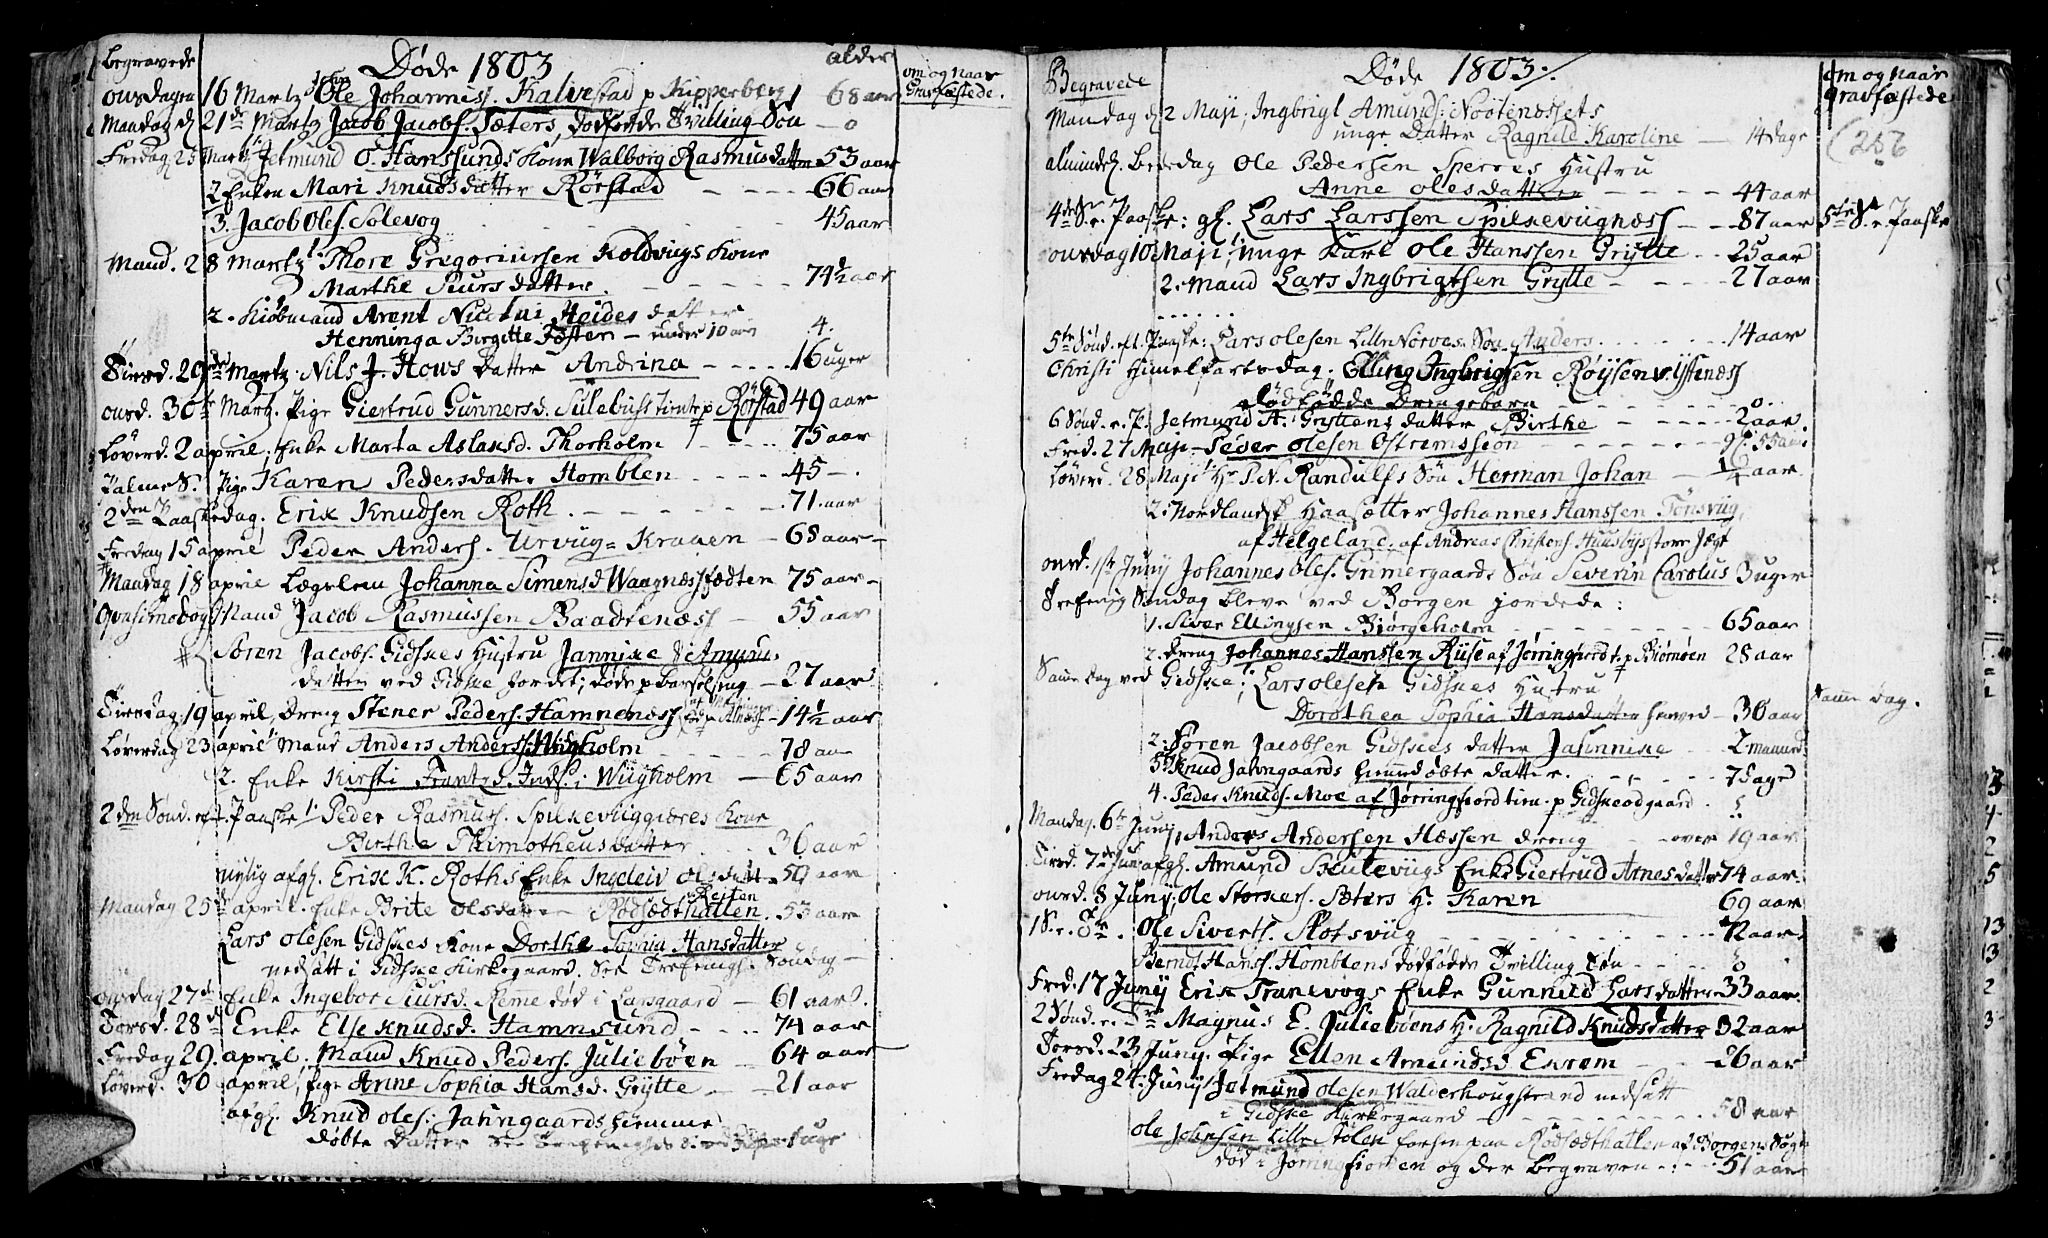 begravede Døde 1803 alder om og naar Gravfæstede.
onsdagen 16 Martz Ole Johanness. Kalvestad p Kipperberg 68 aar
Mandag d 21de Martz Jacob Jacobs. Sæters, dødfødde Tvilling Søn — 0
Fredag 25 Martz Jetmund O. Hanssunds Kone Walborg Rasmusdatter 53 aar
2 Enken Mari Knudsdatter Rørstad 66 aar
3. Jacob Oles. Solevog 45 aar
Mand. 28 Martz Thore Gregoriussen Koldvugs Kone
Marthe Siursdatter 74½ aar
2. Kiøbmand Arent Nicolai Heides datter
Henninga Birgitte Føsten — under 10 aar 4.
Tirsd. 29de Martz. Nils J. Hows datter Andrina 16 uger
onsd. 30te Martz. Pige Giertrud Gunnersd. Sulebust tiente p Rørstad 49 aar
Løverd. 2 april, Enke Marta Aslaksd. Thorholm 75 aar
Palme S. Pige Karen Pedersdatter Homblen 45 —.
2den Paaskedag. Erik Knudsen Roth 71. aar
Fredag 15 april Peder Anders. Urvug-Kraaen 68 aar
Mandag 18 april Lægelem Johanna Simensd Waagnæs fødten 75 aar
Qvasimodog. Mand Jacob Rasmussen Baadtenæss 55 aar
Søren Jacobs. Gidskes Hustru Jannike Amunds
datter ved Gidske Jordet; døde p barselseng 27 aar
Tirsdag 19 april, Dreng Stener Peders. Hamnenæss 14½ aar
Løverdag 23 april Mand Anders Anderss. Wiigholm 78 aar
2. Enke Kirsti Frantzd. Inds. i Wiigholm 65 aar
2den Sønd. eft. Paaske Peder Rasmus. Spilkevuggiæres Kone
Birthe Thimotheusdatter 36 aar
nylig afgl. Erik K. Roths Enke Ingeleiv Olsdatter 59 aar
Mandag 25de april. Enke Brite Olsdatter Reiten Rødsædthatlen. 53 aar
Lars Olesen Gidskes Kone Dorthe Sophia Hansdatter
nedsatt i Gidske Kirkegaard. See Trefenigh. Søndag —
onsdag 27de Enke Ingebor Siursd. Remme død i Larsgaard 61 aar
Torsd. 28de Enke Else Knudsd. Hamnsund 74 aar
Fredag 29. april, Mand Knud Peders. Juliebøen 64 aar
Løverd. 30 april, Pige Anne Sophia Hansd. Grytte 21 aar
afgl. Knud Oles. Jahngaards hiemme
døbte Datter See
Begravede Døde 1803. om og naar gravfæstede
Mandag d 2 Maji, Ingbrigt Amunds. Nøtenessets
unge Datter Ragnild Karoline 14 dage (256
almindel. Bededag Ole Pedersen Sperres Hustru
Anne Olesdatter 44 aar
4de S. e. Paaske: gl. Lars Larssen Spilkeviignæss 87 aar 5te S. e. Paaske
onsdag 10 Maji, unge Karl Ole Hanssen Grytte 25 aar
2. Mand Lars Ingbrigtsen Grytte 27 aar
5te Sønd. eft. Paaske: Lars Olesen Lille Nørves Søn Anders 14 aar
Christi Himmelfartsdag. Elling Ingbrigtsen Røysens
dødfødde Drengebarn 0.
6 Sønd. e. P. Jetmund A. Gryttens datter Birthe 2 aar
Fred. 27 Maji Peder Olesen gl. 55 aar
Løverd. 28 Maji Hr. P. N. Randulfs Søn Herman Johan aar
2. Nordlandsk Haasætter Johannes Hanssen Tonsviig
af Helgeland, af Andreas Christens. store Jægt
onsd. 1ste Junij Johannes Oles. Grimergaards Søn Severin Carolus 3 uger
Trefenig Søndag bleve ved Borgen jordede:
1. Siver Ellingsen Biørgeholm 65 aar
2. dreng Johannes Hanssen Riise af Jørringfiord t. p Biørnøen 28 aar
Same dag ved Gidske: Lars Olesen Gidskes Hustru
Dorothea Sophia Hansdatter 36 aar same dag.
2. Søren Jacobsen Gidskes datter Jahnnike 2 maaned
3. Knud Jahngaards hiemdøbte datter. 7 dage
4. Peder Knuds. Moe af Jørringfiord tien. p Gidskeodgaard.
Mandag 6te Junij, Anders Andersen Hæssen dreng over 19 aar
Tirsd. 7de Juni afgl. Amund Skutevugs Enke Giertrud Arnesdatter 74 aar
onsd. 8 Junij Ole Storkers. Sæters H. Karen 69 aar
1 S. e. Tr. Ole Sivertss. Slotsvug 72 aar
Berndt Hanss. Homblens dødfødde Tvilling Søn 0
Fred. 17 Junij Erik Tranevogs Enke Gunnild Larsdatter 33 aar.
2 Sønd. e. Tr. Magnus E. Juliebøens H. Ragnild Knudsdatter 32 aar
Torsd. 23 Junij. Pige Ellen Amundsd Exrem 26 aar
Fredag 24. Junij Jetmund Olesen Walderhougstrand nedsatt
i Gidske Kirkegaard 58 aar
Ole Johnsen Lille Stolen forhen paa Rødsædthatlen af Borgens Sogn
død i Jørringfiorden og der begraven 51 aar